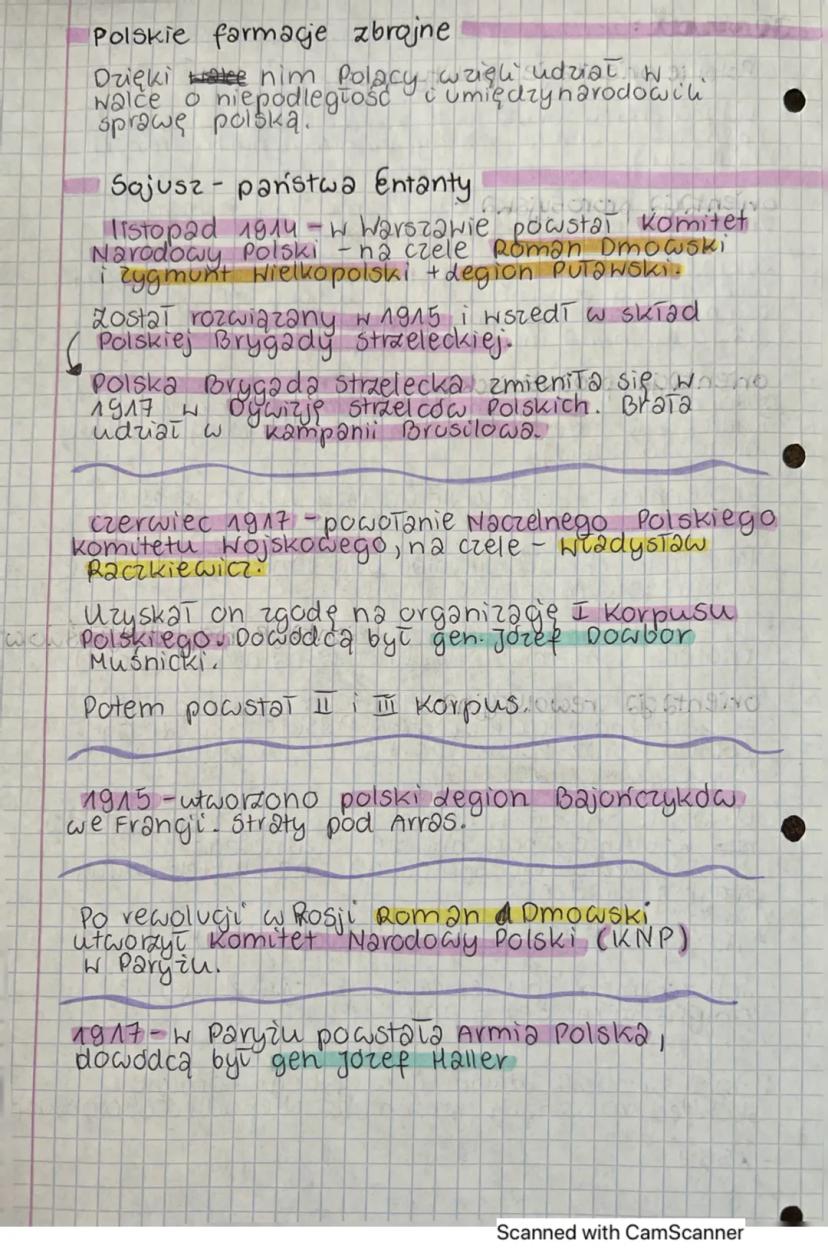 Polskie formacje zbrojne
Dzięki nim Polacy wzięli udział w
walce o niepodległość i umiędzynarodowili
sprawę polską.
Sojusz - państwa Ententy
listopad 1914 - w Warszawie powstał Komitet
Narodowy Polski - na czele Roman Dmowski
i Zygmunt Wielkopolski + Legion Puławski.
Został rozwiązany w 1915 i wszedł w skład
Polskiej Brygady Strzeleckiej.
Polska Brygada Strzelecka zmieniła się w
1917 w Dywizję Strzelców Polskich. Brała
udział w kampanii Brusiłowa.
czerwiec 1917 - powołanie Naczelnego Polskiego
Komitetu Wojskowego, na czele - Władysław
Raczkiewicz.
Uzyskał on zgodę na organizację I Korpusu
Polskiego. Dowódcą był gen. Józef Dowbor
Muśnicki.
Potem powstał II i III Korpus.
1915 - utworzono polski Legion Bajończyków
we Francji. Straty pod Arras.
Po rewolucji w Rosji Roman Dmowski
utworzył Komitet Narodowy Polski (KNP)
w Paryżu.
1917 - w Paryżu powstała Armia Polska,
dowódcą był gen Józef Haller
Scanned with CamScanner